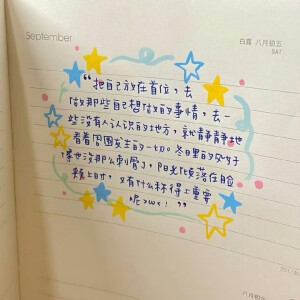 September
白露 八月初五
SAT
“把自己放在首位，去
做那些自己想做的事情，去一
些没有人认识的地方，就静静地
看着周围发生的一切。冬日里的
等也没那么刺骨了，阳光倾落在脸
颊上时，又有什么称得上重要
呢>w<！”
八月初六